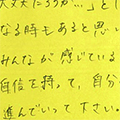 大丈夫だろうか…」とし
なる時もあると思い
みんなが感じている
自信を持って、自分
進んでいって下さい。